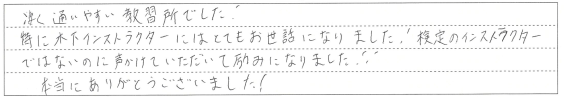 凄く通いやすい教習所でした!
特に木下インストラクターにはとてもお世話になりました!検定のインストラクター
ではないのに声かけていただいて励みになりました!!
本当にありがとうございました!